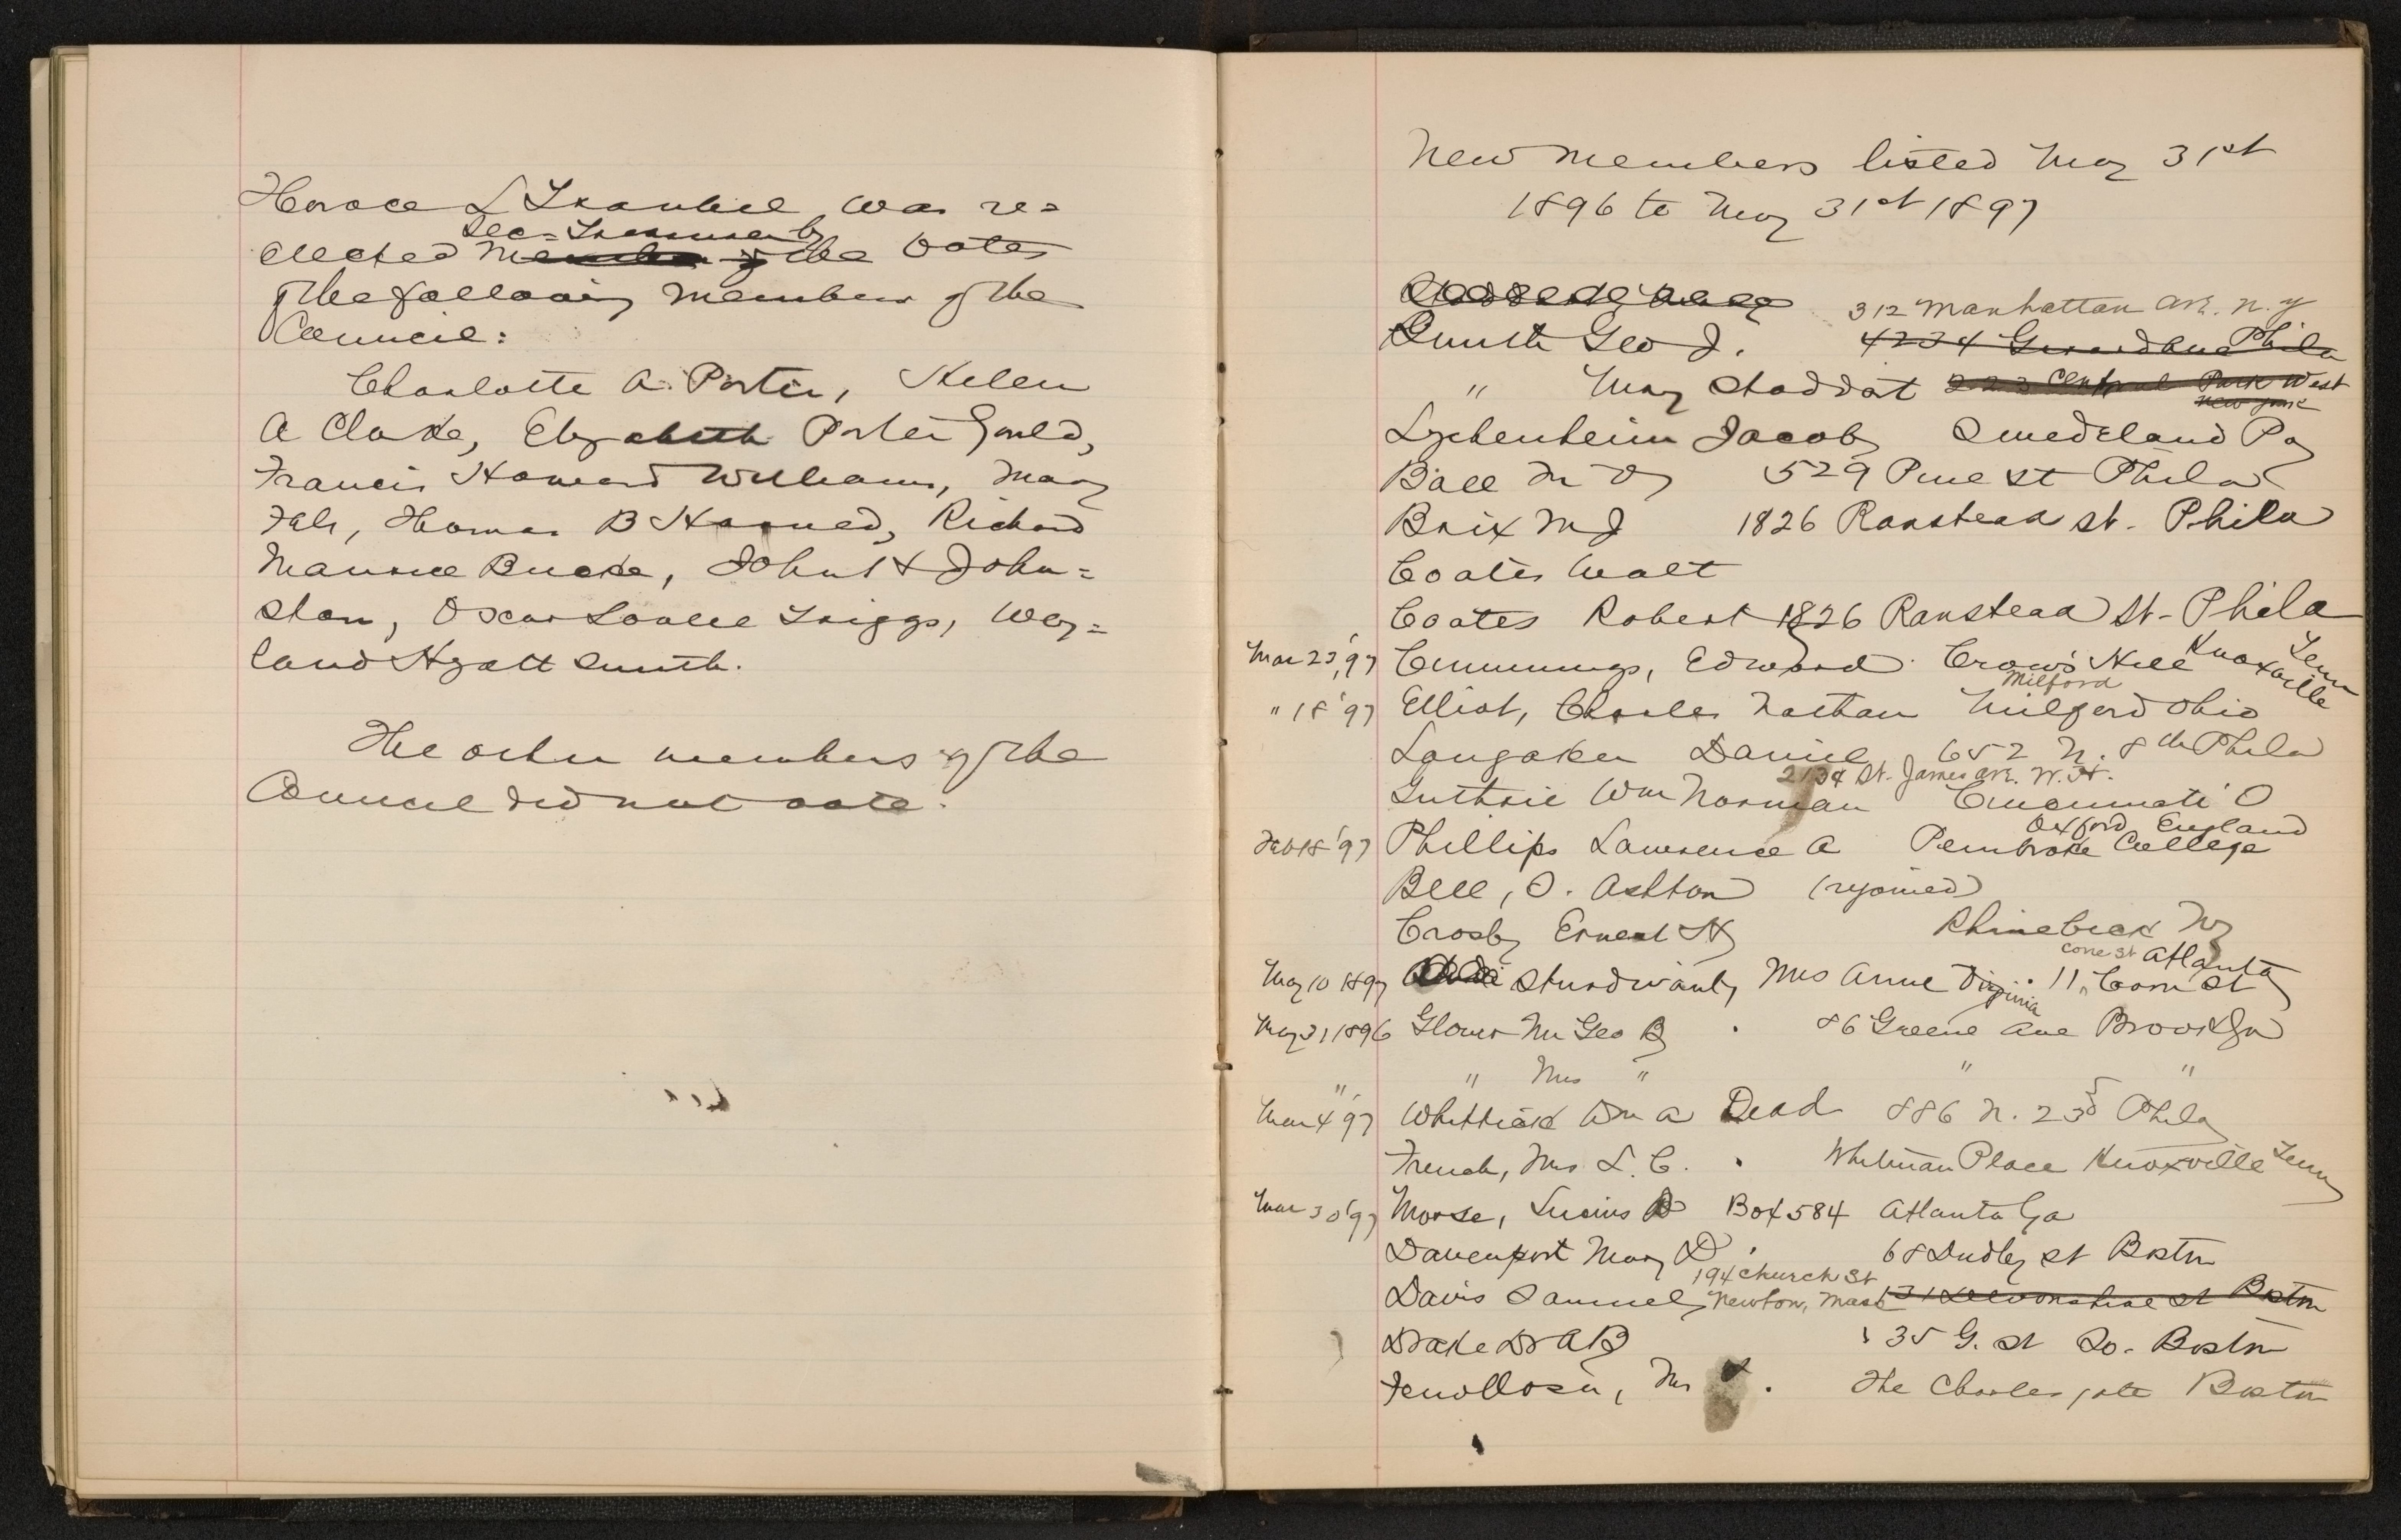 Horace L Traubel was re=
Sec=Treasurer by
elected Member of the votes
of the following members of the
Council:
Charlotte A. Porter, Helen
A Clarke, Elizabeth Porter Gould,
Francis Howard Williams, May
Fels, Thomas B Harned, Richard
Maurice Bucke, John H John=
ston, Oscar Lovell Triggs, Way=
land Hyatt Smith.
The other members of the
Council did not vote.
New members listed May 31st
1896 to May 31st 1897
312 Manhattan ave. N.Y
Smith Geo J. 4234 Girard Ave Phila
" May Stoddart 223 Central Park West
New York
Lychenheim Jacob Swedeland Pa
Ball M V 529 Pine St Phila
Brix M J 1826 Ranstead St. Phila
Coates Walt
Coates Robert 1826 Ranstead St- Phila
Mar 23, '97 Cummings, Edward Crow's Hill Knoxville Tenn
Milford
" 18 '97 Elliot, Charles Nathan Milford Ohio
Longaker Daniel 652 N. 8th Phila
2134 St. James ave. W.H.
Guthrie Wm Norman Cincinnati O
Oxford England
Feb 18 '97 Phillips Lawrence A Pembroke College
Bell, O. Ashton (rejoined)
Crosby Ernest H Rhinebeck NY
cone st Atlanta
May 10 1897 Sturdivant, Mrs Anne Virginia 11 Corn St
May 31 1896 Glover Mr Geo B 86 Greene Ave Brooklyn
" " Mrs " " "
Mar 4 '97 Whittick Wm A Dead 886 N. 23d Phila
French, Mrs L. C. Whitman Place Knoxville Tenn
Mar 30 '97 Morse, Lucius D Box 584 Atlanta Ga
Davenport Mary D 68 Dudley St Boston
194 Church St
Davis Samuel Newton, Mass 131 Devonshire St Boston
Drake Dr A B 35 G. St So. Boston
Fenollosa, Mr The Charlesgate Boston